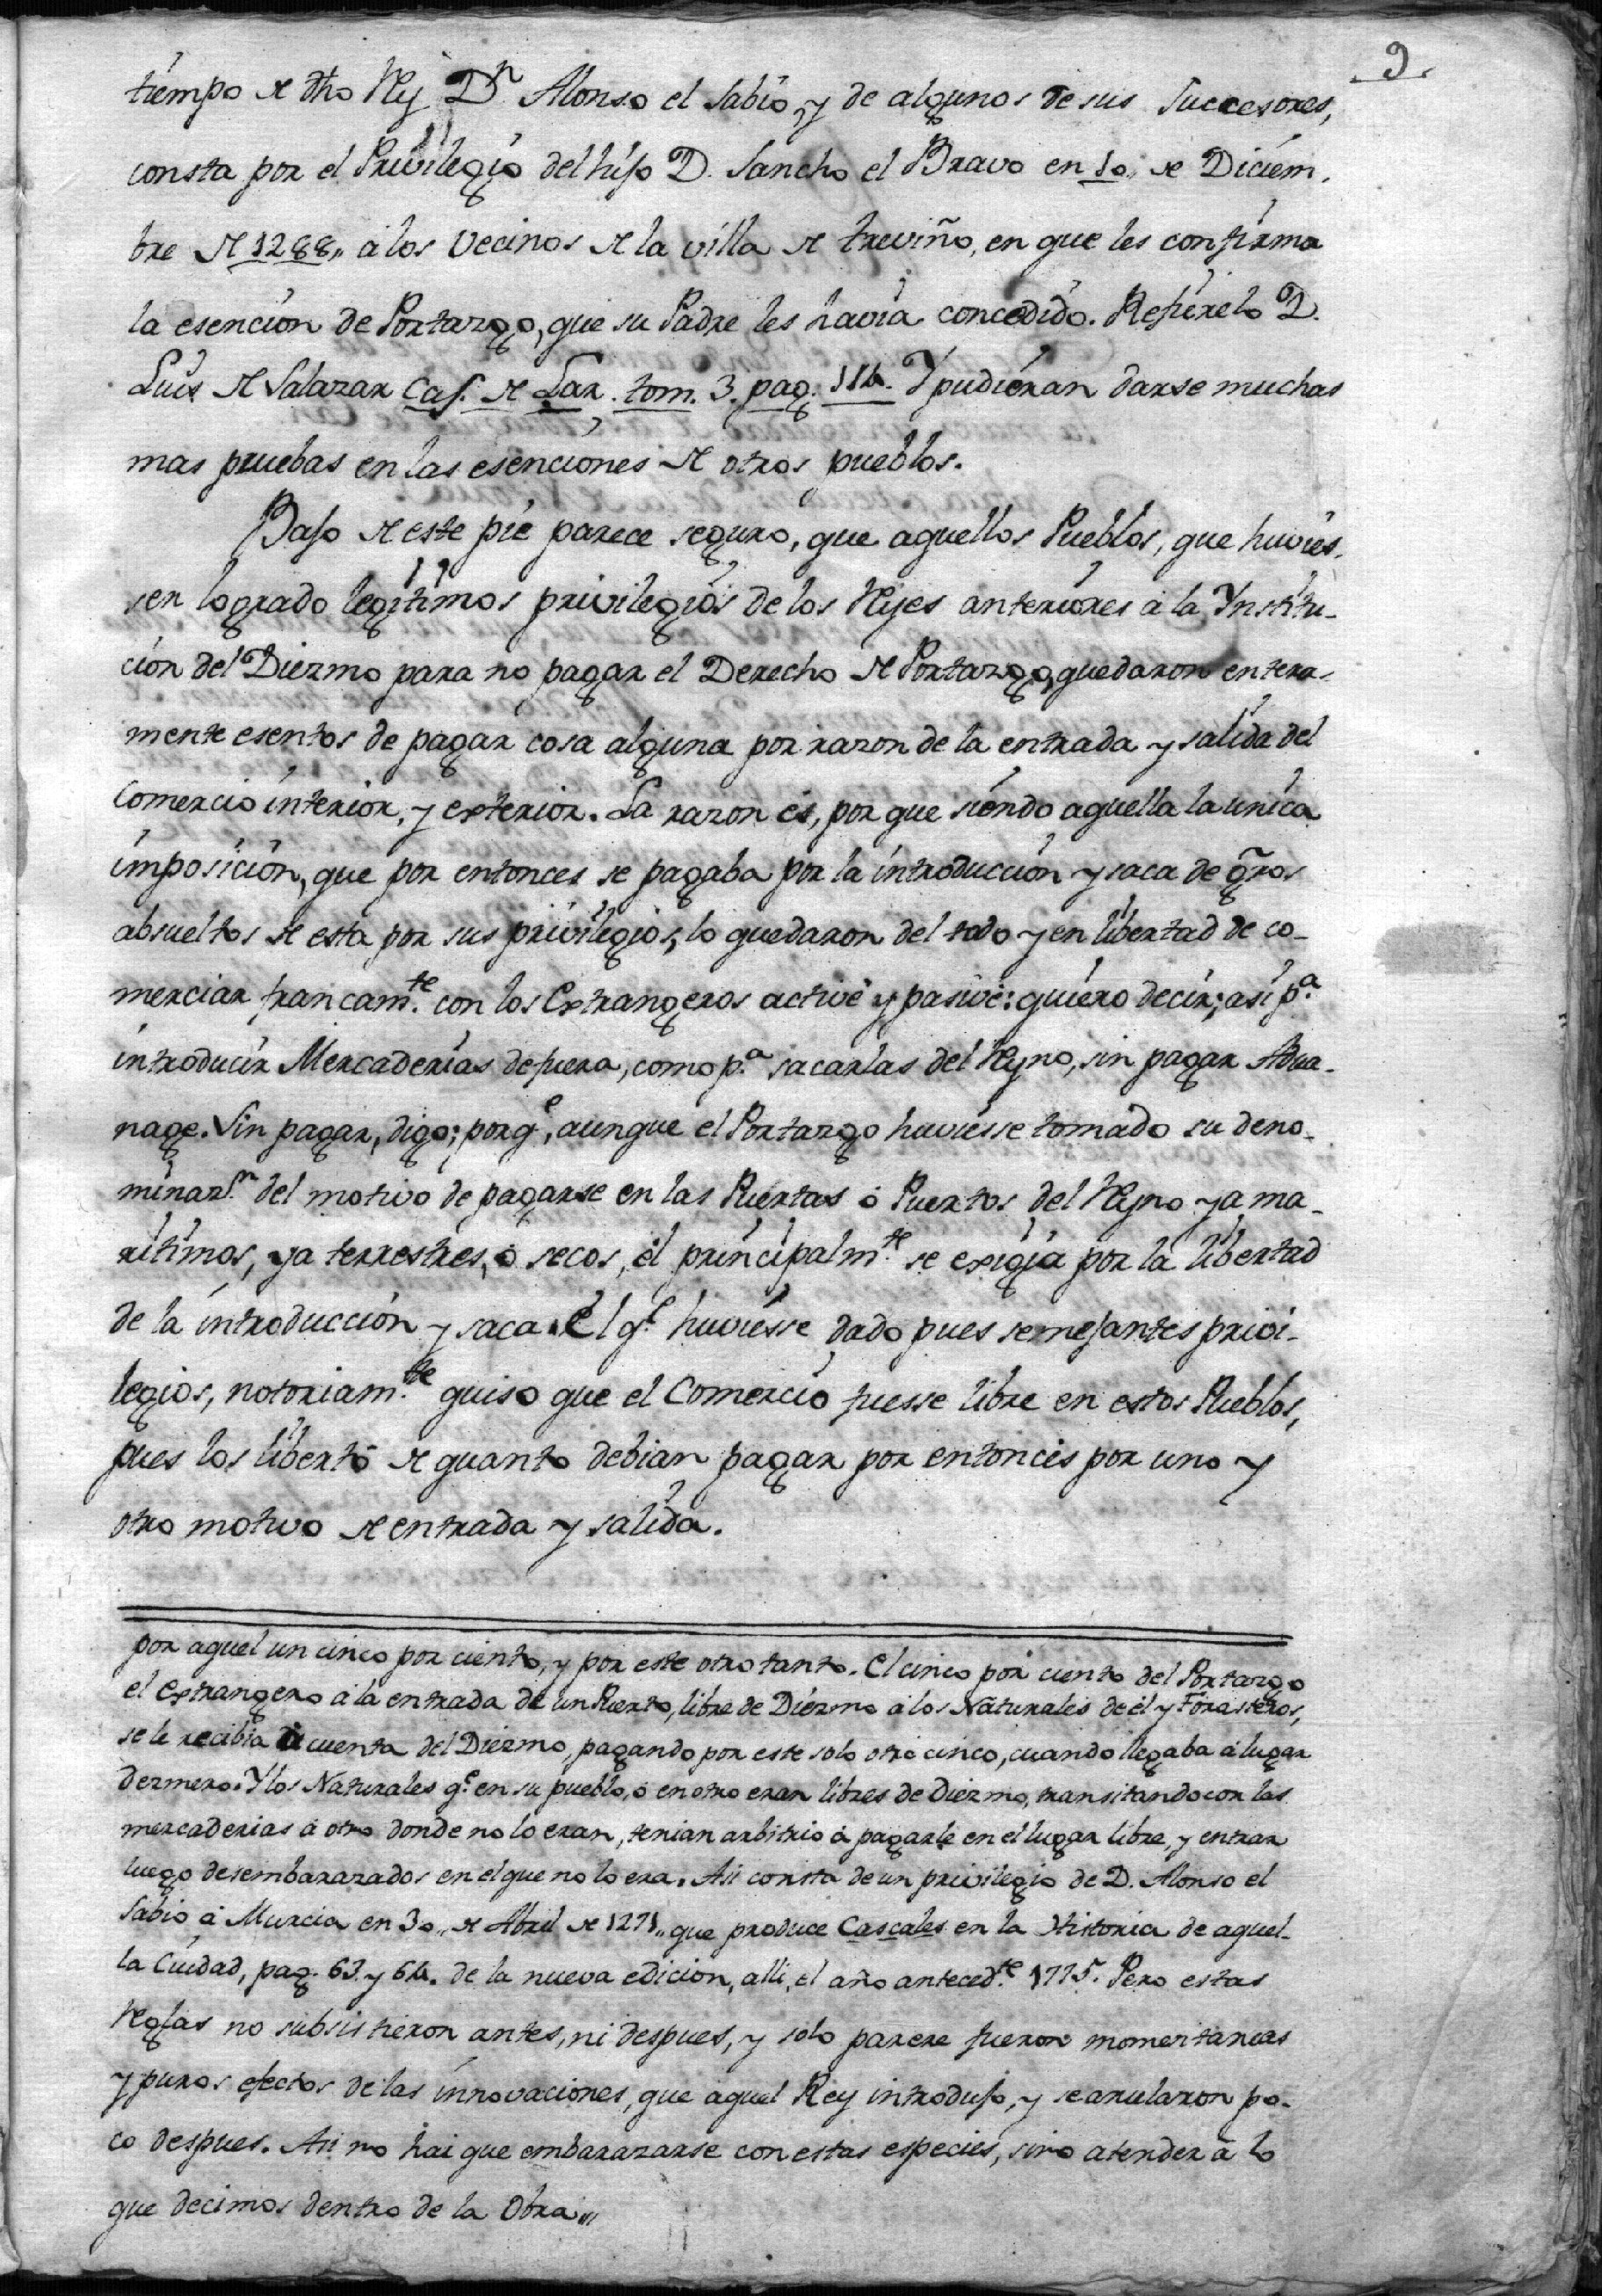 9
tiempo de dho Rey Dn Alonso el Sabio, y de algunos de sus Succesores,
consta por el Privilegio del hijo D. Sancho el Bravo en 10,, de Diciem-
bre de 1288,, á los Vecinos de la villa de treviño, en que les confirma
la esencion de Portazgo, que su Padre les havia concedido. Refierelo D.
Luis de Salazar Cas. de Lar. tom. 3. pag. 114. Y pudieran darse muchas
mas pruebas en las esenciones de otros pueblos.
Bajo de este pie parece seguro, que aquellos Pueblos, que huvies-
sen logrado legitimos privilegios de los Reyes anteriores á la Institu-
cion del Diezmo para no pagar el Derecho de Portazgo, quedaron entera-
mente esentos de pagar cosa alguna por razon de la entrada y salida del
Comercio interior, y exterior. La razon es, por que siendo aquella la unica
imposicion, que por entonces se pagaba por la introduccion y saca de gros
absueltos de esta por sus privilegios, lo quedaron del todo y en libertad de co-
merciar francamte. con los Extrangeros activè y pasivè: quiero decir; asi pa.
introducir Mercaderias de fuera, como pa. sacarlas del Reyno, sin pagar Adua-
nage. Sin pagar, digo; porqe, aunque el Portazgo huviesse tomado su deno-
minazn. del motivo de pagarse en las Puertas ó Puertos del Reyno ya ma-
ritimos, ya terrestres, ó secos, él principalmte. se exigia por la libertad
de la introduccion y saca. El qe. huviesse dado pues semejantes privi-
legios, notoriamte. quiso que el Comercio fuesse libre en estos Pueblos,
pues los libertó de quanto debian pagar por entonces por uno y
otro motivo de entrada y salida.
por aquel un cinco por ciento, y por este otro tanto. El cinco por ciento del Portazgo
el Extrangero á la entrada de un Puerto, libre de Diezmo á los Naturales de él y Forasteros,
se le recibia á cuenta del Diezmo, pagando por este solo otro cinco, cuando llegaba á lugar
dezmero. Y los Naturales qe. en su pueblo, ó en otro eran libres de Diezmo, transitando con las
mercaderias á otro donde no lo eran, tenian arbitrio á pagarle en el lugar libre, y entrar
luego desembarazados en el que no lo era. Asi consta de un privilegio de D. Alonso el
Sabio á Murcia en 30,, de Abril de 1271,, que produce Cascales en la Historia de aquel-
la Ciudad, pag. 63. y 64. de la nueva edicion, alli, el año antecedte. 1775. Pero estas
Reglas no subsistieron antes, ni despues, y solo parece fueron momentaneas
y puros efectos de las innovaciones, que aquel Rey introdujo, y se anularon po-
co despues. Asi no hai que embarazarse con estas especies, sino atender á lo
que decimos dentro de la Obra,,,